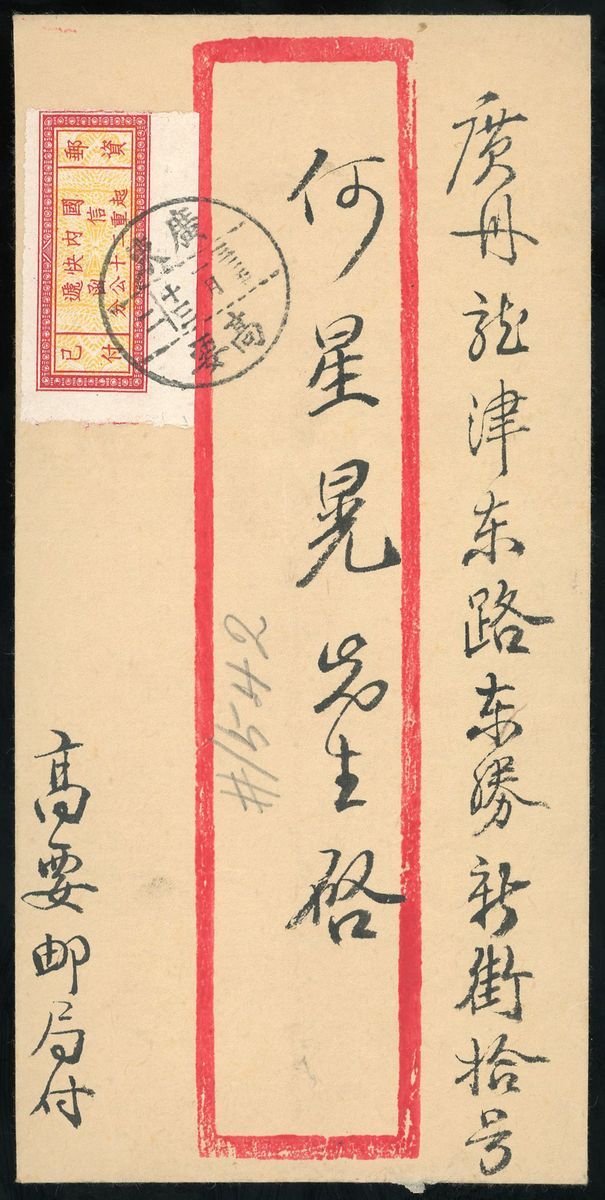 廣州龙津东路东勝新街拾号
何星晃先生啓
高要邮局付
郵資
國内快遞
信函
起重十公分
已付
廣東
高要
#1542